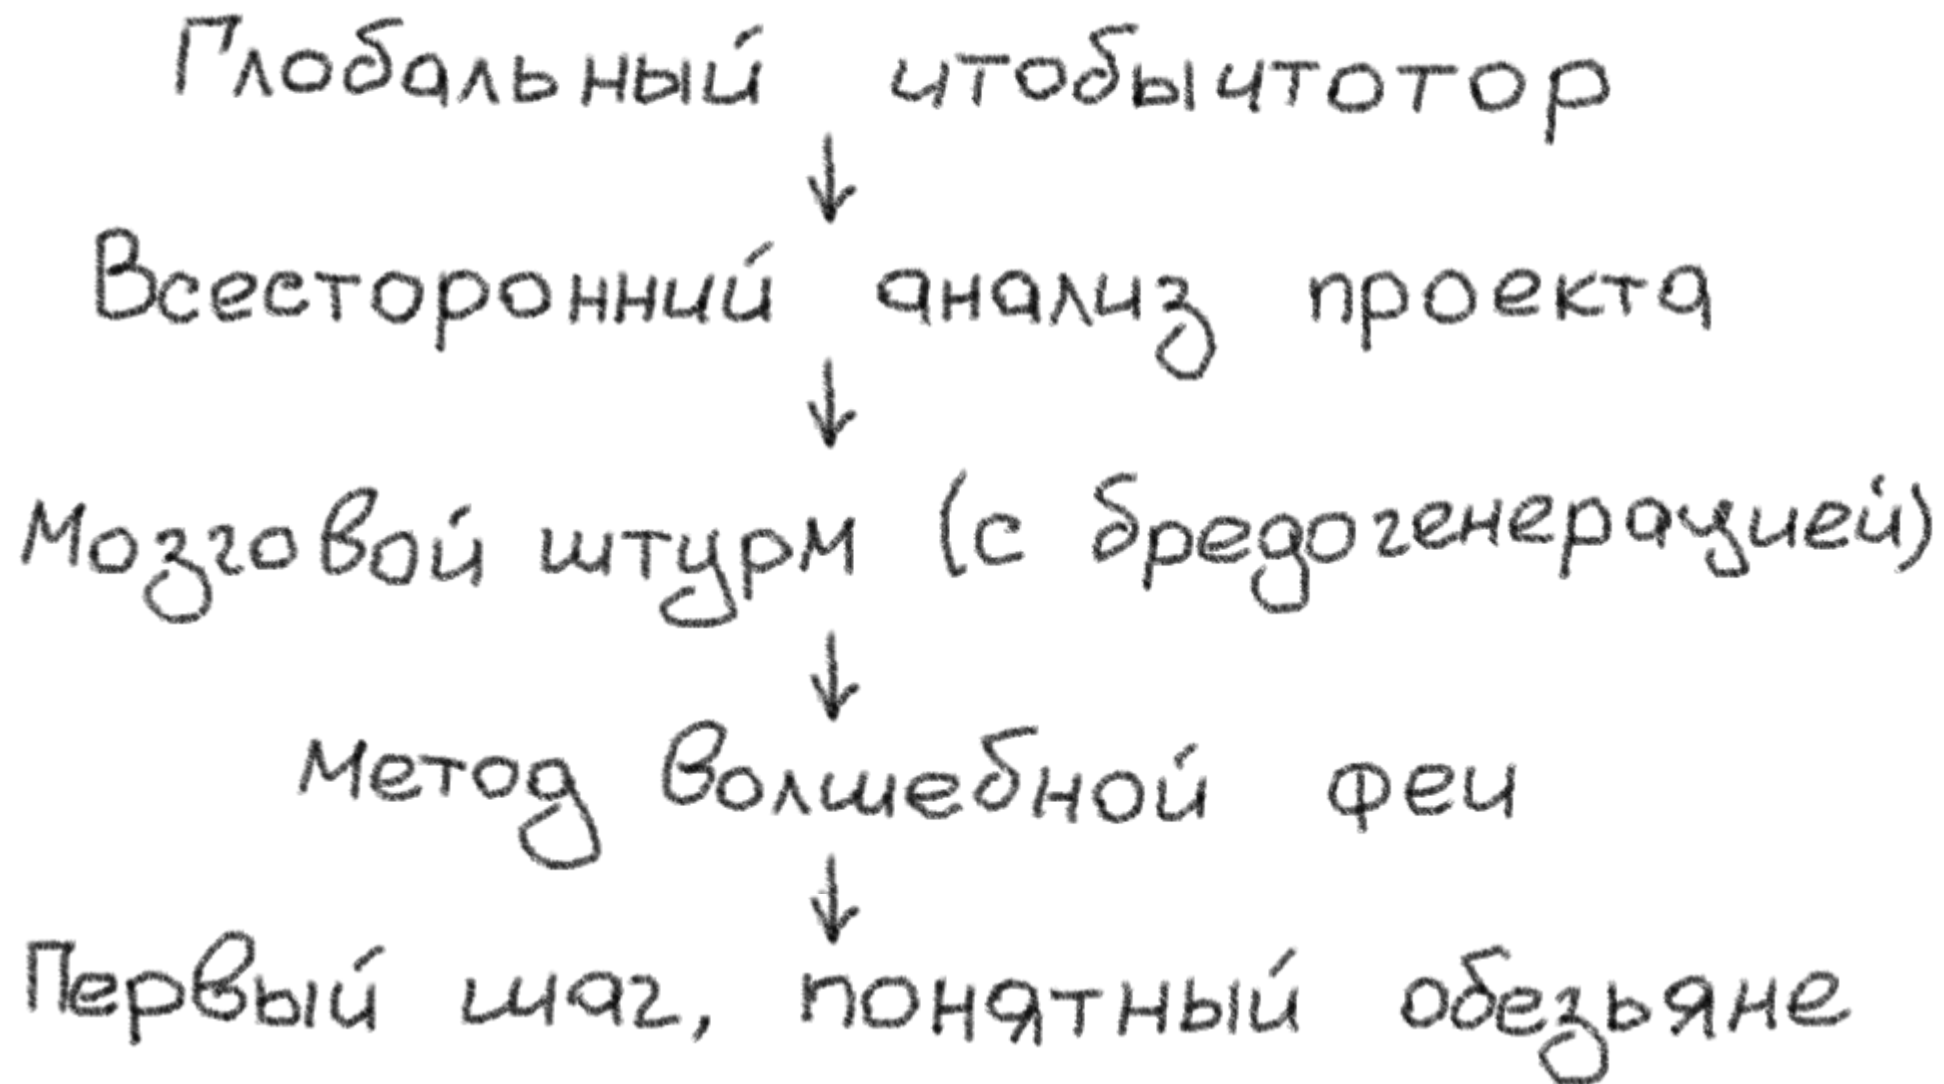 Глобальный чтобычтотор
Всесторонний анализ проекта
Мозговой штурм (с бредогенерацией)
Метод волшебной феи
Первый шаг, понятный обезьяне